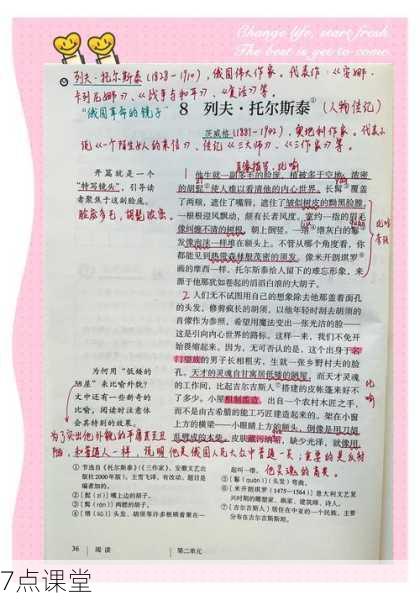 Change life, start fresh
The best is yet to come
列夫·托尔斯泰(1828-1910),俄国伟大作家,代表作《安娜·
卡列尼娜》、《战争与和平》、《复活》等。
“俄国革命的镜子”
8 列夫·托尔斯泰①
(人物传记)
茨威格(1881-1942),奥地利作家,代表小
说《一个陌生女人的来信》,传记《三大师》、《三作家》等。
直接描写、比喻
开篇就是一个
“特写镜头”,引导读
者聚焦于这副脸庞。
脸庞多毛,胡髭浓密。
1 他生就一副多毛的脸庞,植被多于空地,浓密
的胡髭②使人难以看清他的内心世界。长髯③覆盖
了两颊,遮住了嘴唇,遮住了皱似树皮的黝黑脸膛,
一根根迎风飘动,颇有长者风度。宽约一指的眉毛
像纠缠不清的树根,朝上倒竖。一绺④灰白的鬈
发像泡沫一样堆在额头上。不管从哪个角度看,你
都能见到热带森林般茂密的须发。像米开朗琪罗
画的摩西一样,托尔斯泰给人留下的难忘形象,来
源于他那犹如卷起的滔滔白浪的大胡子。
2 人们无不试图用自己的想象除去他那盖着面孔
的头发,修剪疯长的胡须,以他年轻时刮去胡须的
肖像作为参照,希望用魔法变出一张光洁的脸——
这是引向内心世界的路标。这样一来,我们不免开
始畏缩起来。因为,无可否认的是,这个出身于名
门望族的男子长相粗劣,生就一张乡野村夫的脸
孔。天才的灵魂自甘寓居低矮的陋屋,而天才灵魂
的工作间,比起吉尔吉斯人搭建的皮帐篷来好不
了多少。小屋粗制滥造,出自一个农村木匠之手,
而不是由古希腊的能工巧匠建造起来的。架在小窗
上方的横梁——小眼睛上方的额头,倒像是用刀胡
乱劈成的木柴。皮肤藏污纳垢,缺少光泽,就像用
为何用“低矮的
陋屋”来比喻外貌?
文中还有一些新奇的
比喻,阅读时注意体
会其特别的效果。
为了突出他外貌的平庸甚至丑
陋,和普通人一样,说明他是俄国人民大众中普通一员;重要的是反衬
他灵魂的高贵。
比喻
① 节选自《托尔斯泰》(《三作家》,安徽文艺出
版社2000年版)。王雪飞译。有改动。题目是
编者加的。
②〔髭(zī)〕嘴上边的胡子。
③〔髯(rán)〕两腮的胡子。
④〔绺(liǔ)〕头发、胡须等许多根顺着聚在一
起叫一绺。
⑤〔鬈(quán)〕(头发)弯曲。
⑥〔米开朗琪罗(1475—1564)〕意大利文艺复
兴时期的雕塑家、画家、建筑师、诗人。
⑦〔吉尔吉斯人〕居住在中亚的一个民族,主要
分布在吉尔吉斯斯坦。
36 阅读 第二单元
7点课堂